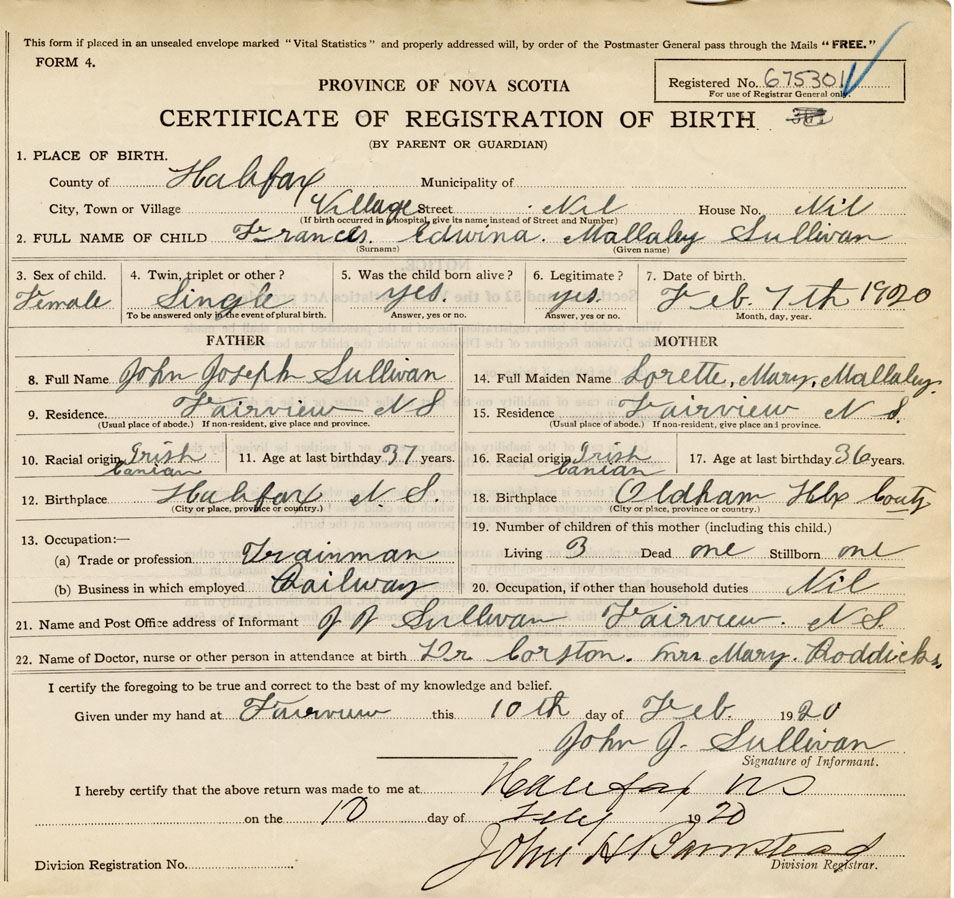 This form if placed in an unsealed envelope marked "Vital Statistics" and properly addressed will, by order of the Postmaster General pass through the Mails "FREE."
FORM 4.
PROVINCE OF NOVA SCOTIA
Registered No. 675301
For use of Registrar General only.
CERTIFICATE OF REGISTRATION OF BIRTH
(BY PARENT OR GUARDIAN)
1. PLACE OF BIRTH.
County of Halifax Municipality of
City, Town or Village Village Street Nil House No. Nil
(If birth occurred in hospital, give its name instead of Street and Number)
2. FULL NAME OF CHILD Frances Edwina. Mallaley Sullivan
(Surname) (Given name)
3. Sex of child. 4. Twin, triplet or other? 5. Was the child born alive? 6. Legitimate? 7. Date of birth.
Female Single yes. yes. Feb. 7th 1920
To be answered only in the event of plural birth. Answer, yes or no. Answer, yes or no. Month, day, year.
FATHER MOTHER
8. Full Name John Joseph Sullivan 14. Full Maiden Name Lorette, Mary, Mallaley.
9. Residence. Fairview N S 15. Residence Fairview N S.
(Usual place of abode.) If non-resident, give place and province. (Usual place of abode.) If non-resident, give place and province.
10. Racial origin Irish Canian 11. Age at last birthday 37 years. 16. Racial origin Irish Canian 17. Age at last birthday 36 years.
12. Birthplace Halifax N S. 18. Birthplace Oldham Hfx Couty
(City or place, province or country.) (City or place, province or country.)
19. Number of children of this mother (including this child.)
13. Occupation:—
(a) Trade or profession Trainman Living 3 Dead one Stillborn one
(b) Business in which employed Railway 20. Occupation, if other than household duties Nil
21. Name and Post Office address of Informant Sullivan Fairview. N S.
22. Name of Doctor, nurse or other person in attendance at birth Dr Corston. Mrs Mary. Roddicks.
I certify the foregoing to be true and correct to the best of my knowledge and belief.
Given under my hand at Fairview this 10th day of Feb. 1920
John J. Sullivan
Signature of Informant.
I hereby certify that the above return was made to me at Halifax NS
on the 10 day of Feby 1920
John H Barnstead
Division Registration No. Division Registrar.